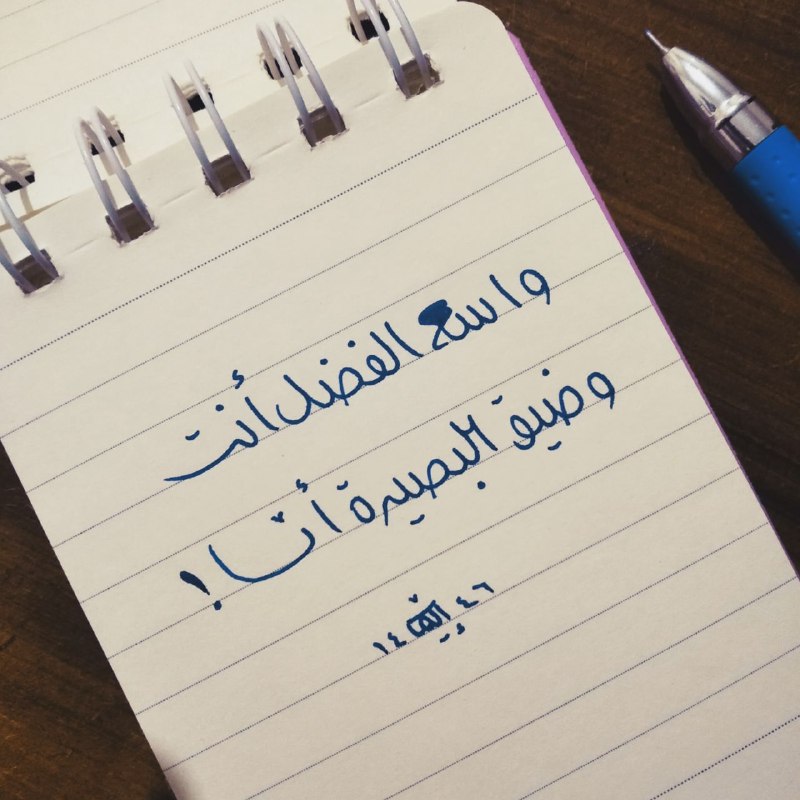 واسع الفضل أنت
وضيق البصيرة أنا !